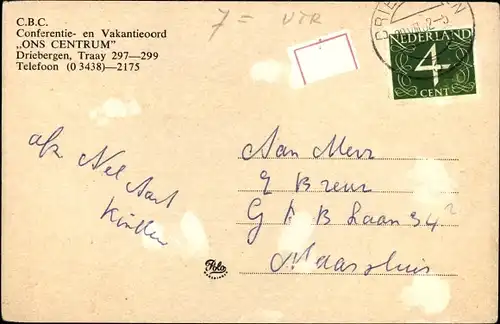 C.B.C.
Conferentie- en Vakantieoord
„ONS CENTRUM"
Driebergen, Traay 297—299
Telefoon (0 3438)—2175
7 = VTR
NEDERLAND
4
CENT
afz Nel Aart
Aan Mevr
E Breur
G A B Laan 34²
Maassluis